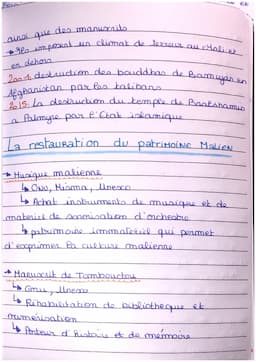 ainsi que des manuscrits
→ Ils imposent un climat de terreur au Mali et
en dehors
2001: destruction des bouddhas de Bamiyan en
Afghanistan par les talibans
2015: La destruction du temple de Baalshamin
a Palmyre par l'Etat islamique
La restauration du patrimoine Malien
→ Musique malienne
↳ Onu, Minsma, Unesco
↳ Achat instruments de musique et de
materiel de sonorisation d'orchestre
↳ patrimoine immateriel qui permet
d'exprimer la culture malienne
→ Manuscrit de Tombouctou
↳ Unesco
↳ Réhabilitation de bibliotheque et
numerisation
↳ Porteur d'histoire et de mémoire